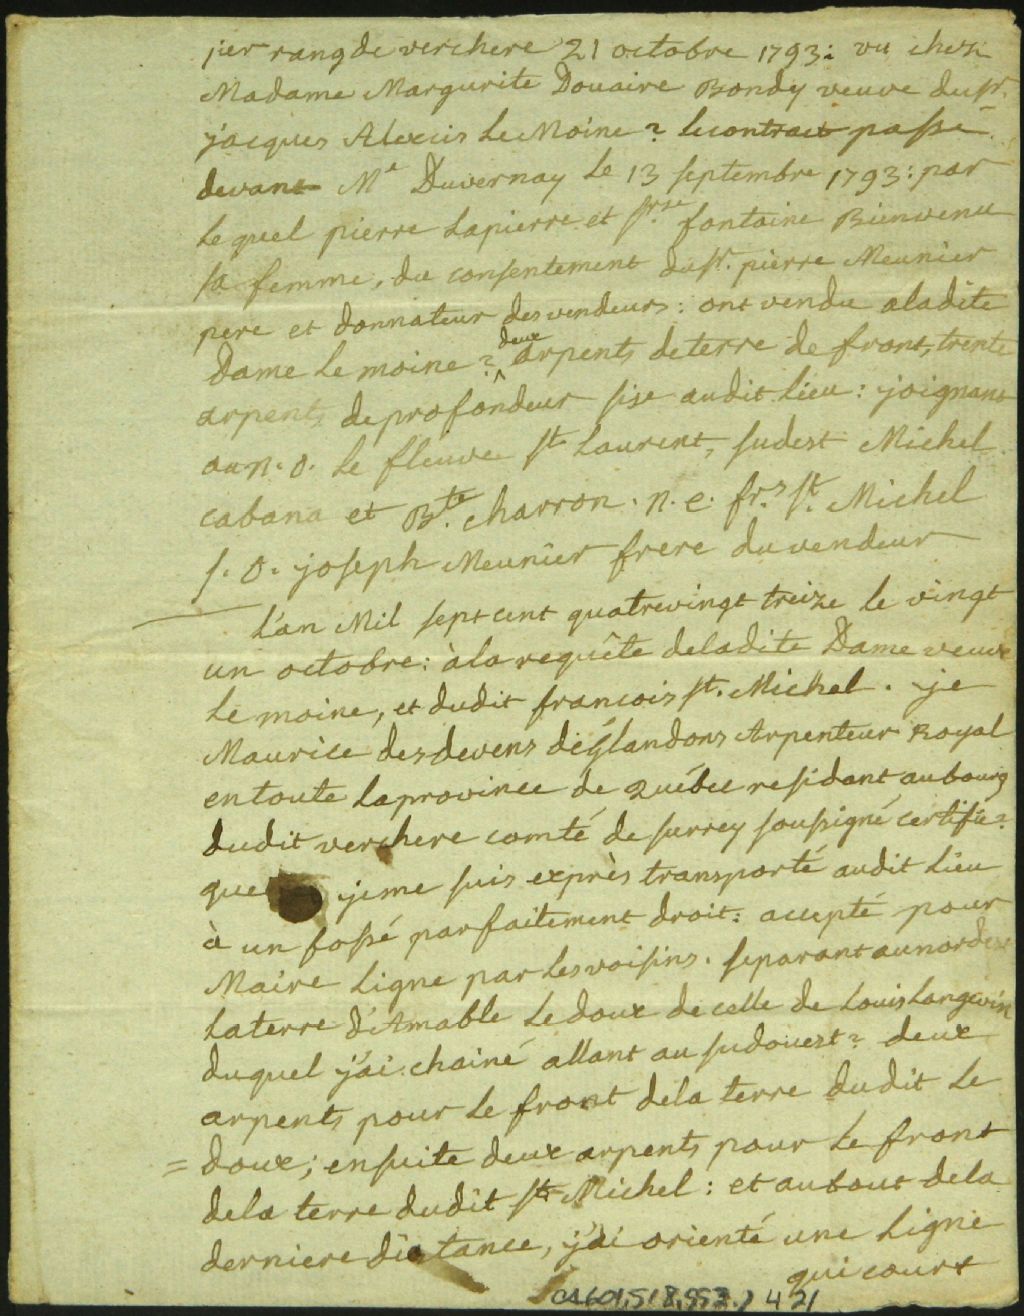 jier rang de verchere 21 octobre 1793: vu chez
Madame Margurite Douaire Bondy veuve du sr.
jacques Alexis Le Moine? le contrat passé
devant Me Duvernay le 13 septembre 1793: par
lequel pierre Lapierre et fontaine Bienvenu
sa femme, du consentement du sr. pierre Meunier
pere et donnateur des vendeurs: ont vendu a ladite
Dame Le moine? deux arpents de terre de front, trente
arpents de profondeur sise audit lieu: joignant
au n. o. le fleuve st Laurent, sudest Michel
cabana et Bte. charron. n. e. frs. st. Michel
s. o. joseph Meunier frere du vendeur
L'an Mil sept cent quatrevingt treize le vingt
un octobre: à la requête deladite Dame veuve
Le moine, et dudit francois st. Michel. je
Maurice desdevens déglandons Arpenteur Royal
en toute la province de Québec residant au bourg
dudit verchere comté de surrey soussigné certifie?
que je me suis exprès transporté audit lieu
à un fossé parfaitement droit: accepté pour
Maire Ligne par les voisins. separant au nordest
la terre d'Amable Le doux de celle de Louis Langevin
duquel j'ai chainé allant au sudouest? deux
arpents pour le front dela terre dudit Le
= doux; ensuite deux arpents pour le front
dela terre dudit st Michel: et aubout dela
derniere distance, j'ai orienté une Ligne
qui court
CA601,S18,SS2. / 421